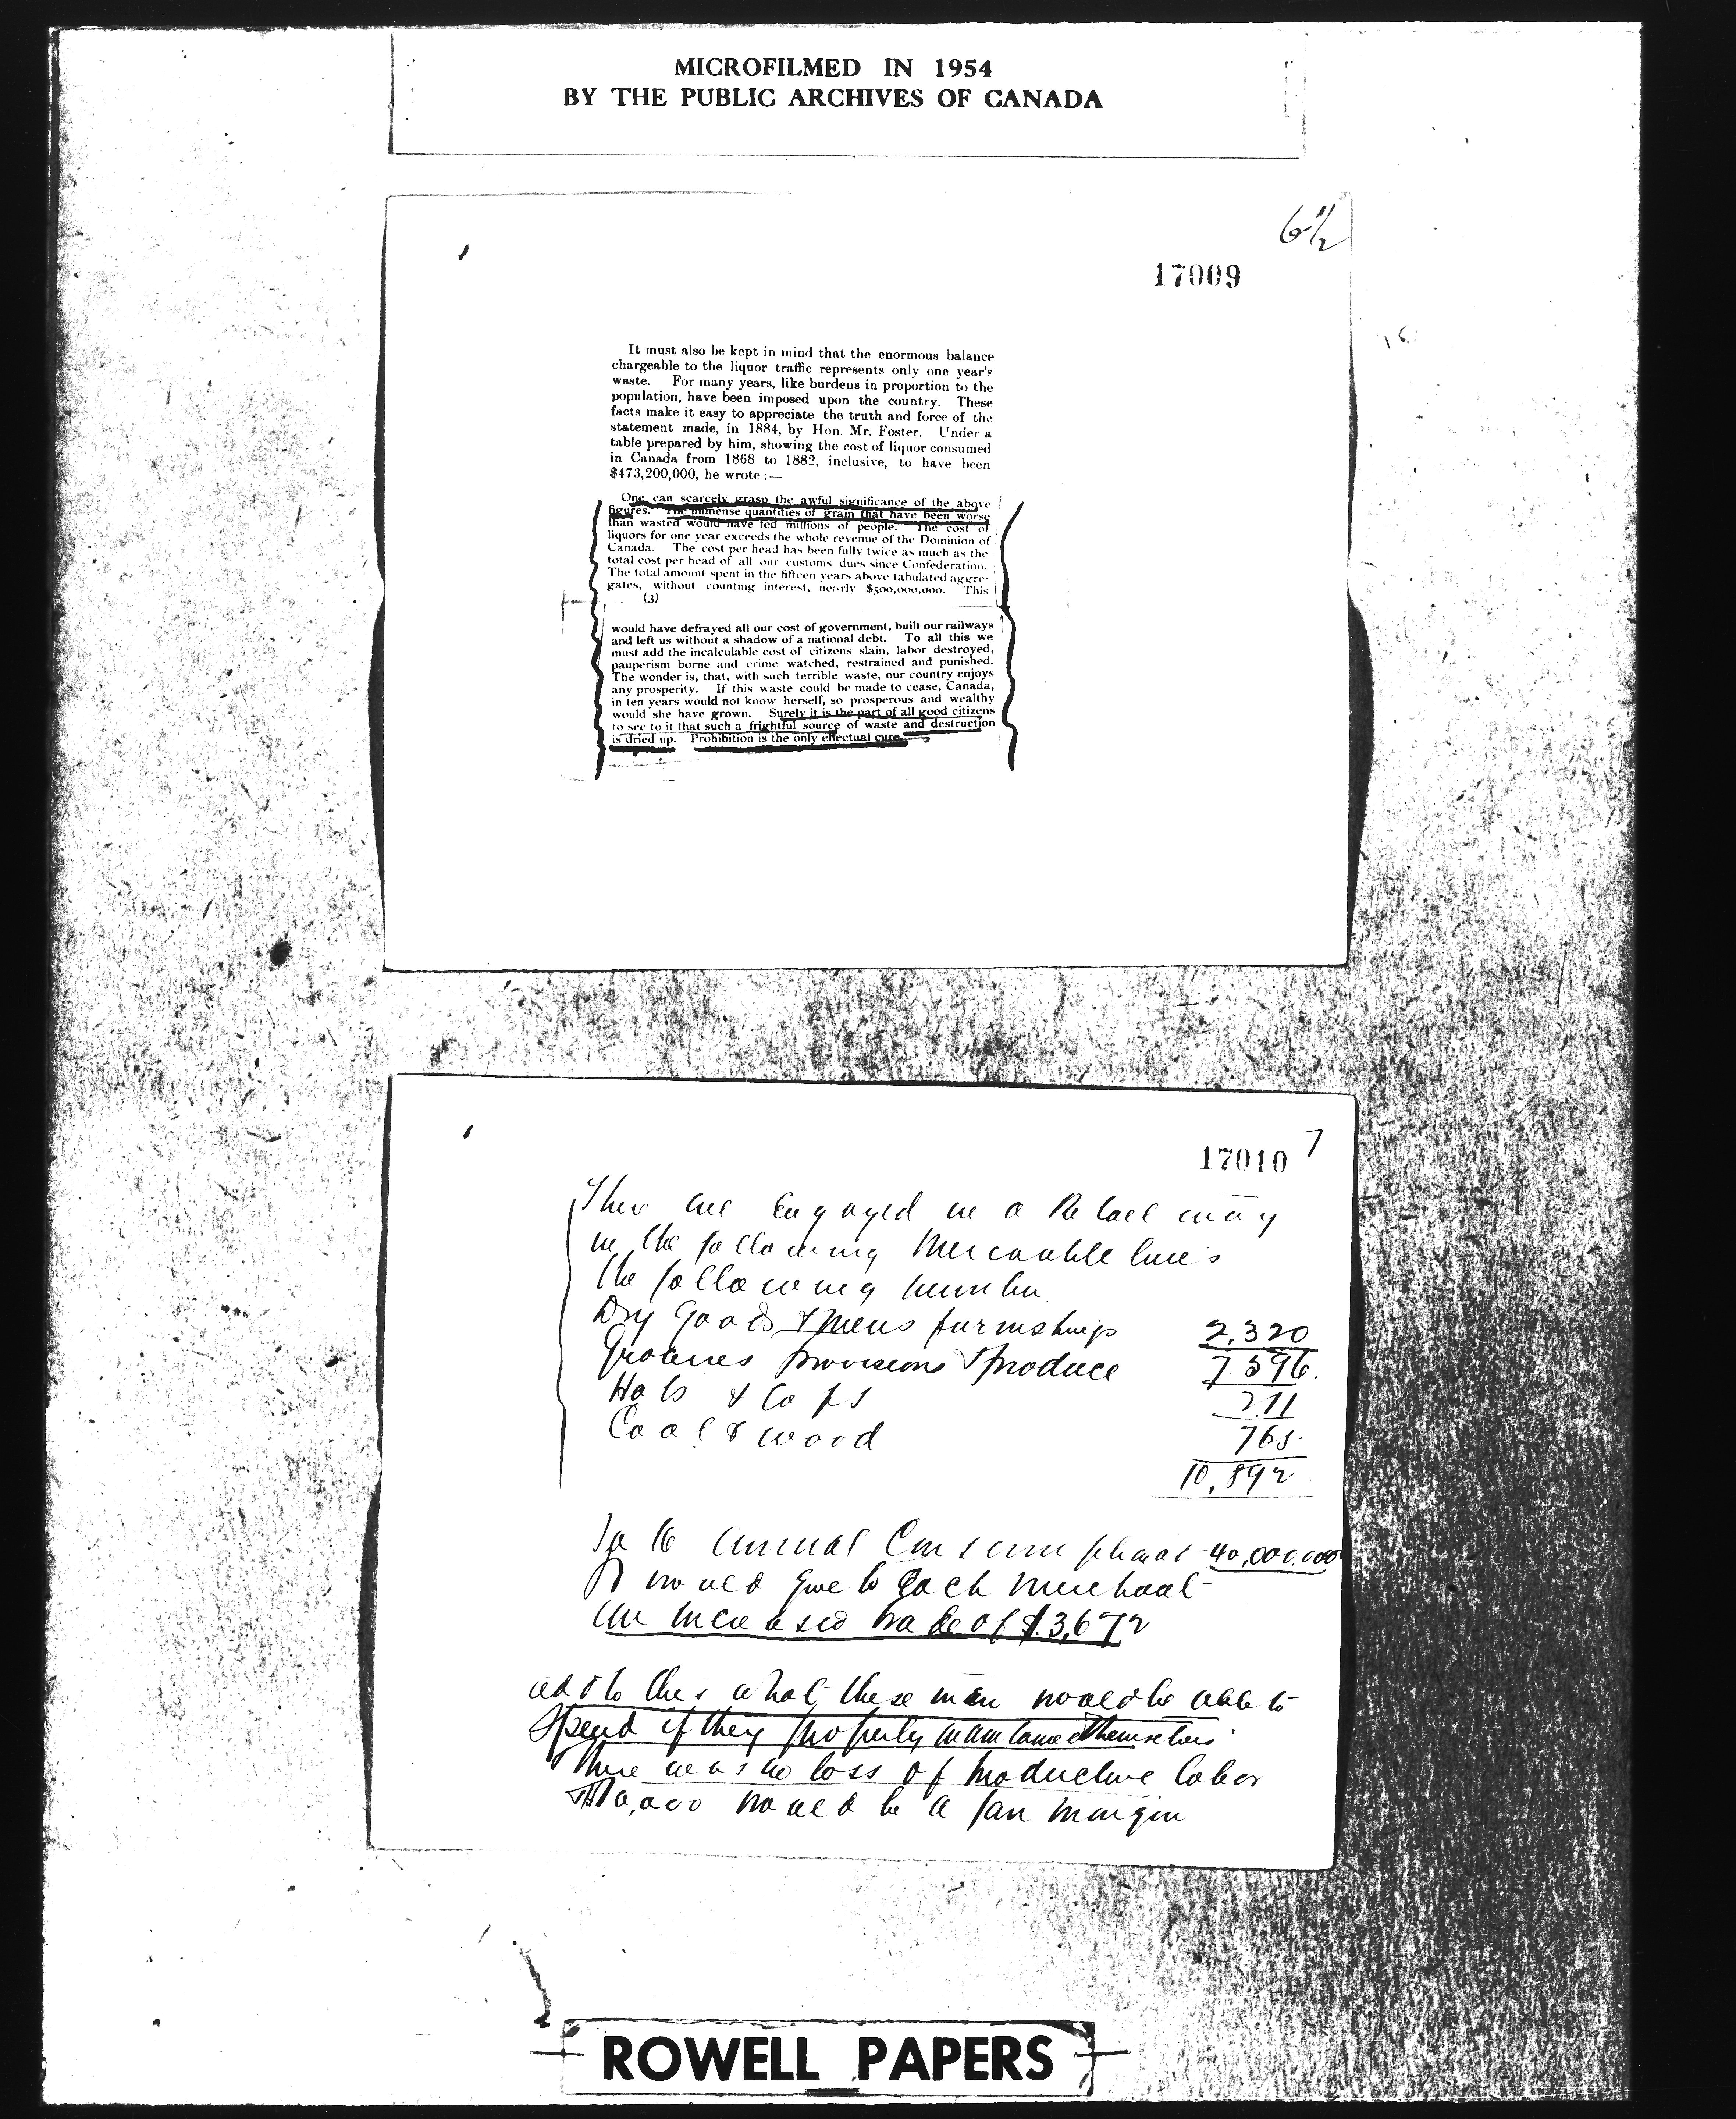 MICROFILMED IN 1954
BY THE PUBLIC ARCHIVES OF CANADA
6 1/2
17009
It must also be kept in mind that the enormous balance
chargeable to the liquor traffic represents only one year's
waste. For many years, like burdens in proportion to the
population, have been imposed upon the country. These
facts make it easy to appreciate the truth and force of the
statement made, in 1884, by Hon. Mr. Foster. Under a
table prepared by him, showing the cost of liquor consumed
in Canada from 1868 to 1882, inclusive, to have been
$473,200,000, he wrote:—
One can scarcely grasp the awful significance of the above
figures. The immense quantities of grain that have been worse
than wasted would have fed millions of people. The cost of
liquors for one year exceeds the whole revenue of the Dominion of
Canada. The cost per head has been fully twice as much as the
total cost per head of all our customs dues since Confederation.
The total amount spent in the fifteen years above tabulated aggre-
gates, without counting interest, nearly $500,000,000. This
(3)
would have defrayed all our cost of government, built our railways
and left us without a shadow of a national debt. To all this we
must add the incalculable cost of citizens slain, labor destroyed,
pauperism borne and crime watched, restrained and punished.
The wonder is, that, with such terrible waste, our country enjoys
any prosperity. If this waste could be made to cease, Canada,
in ten years would not know herself, so prosperous and wealthy
would she have grown. Surely it is the part of all good citizens
to see to it that such a frightful source of waste and destruction
is dried up. Prohibition is the only effectual cure.
17010 7
There are engaged in a Retail way
in the following Mercantile line's
the following number
Dry Goods & Mens furnishings 2,320
Groceries provisions & produce 7596.
Hats & Caps 211
Coal & wood 765.
10,892
annual 40,000.000
It would give to Each Merchant
an increased trade of $3,672
add to this what these men would be able to
Spend if they properly maintained themselves
There was no loss of productive labor
10,000 would be a fair margin
ROWELL PAPERS